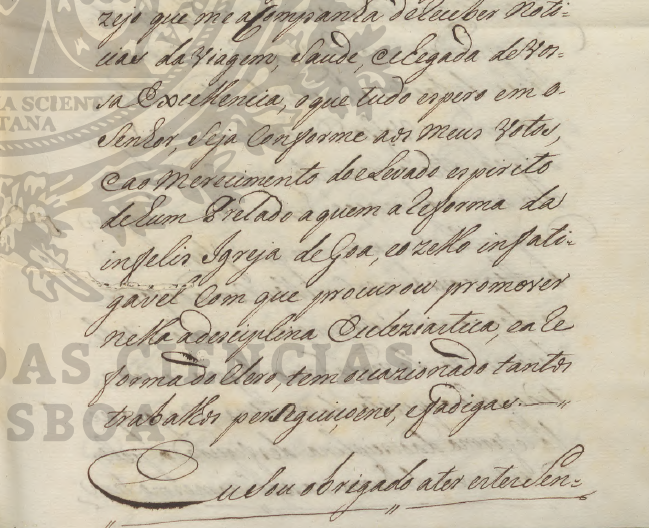 zejo que me acompanha de receber Noti-
cias da Viagem, Saude, e chegada de Vos-
sa Excellencia, o que tudo espero em o-
Senhor, Seja Conforme aos meus Votos,
e ao Merecimento do elevado espirito
de hum Prelado a quem a reforma da
infelis Igreja de Goa, e o zello infati-
gavel Com que procurou promover
nella a desciplina Eccleziastica, e a Re
forma do Clero, tem occazionado tantos
trabalhos perseguiçoens, e fadigas. —„
Eu Sou obrigado a ter estes Sen-
A SCIENT
TANA
DAS CIENCIAS
SBOA